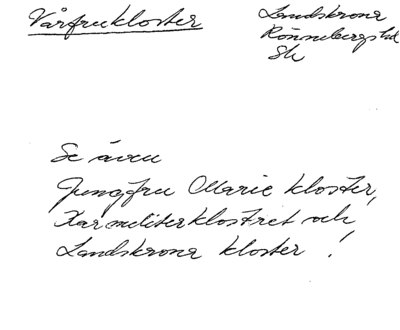 Vårfrukloster
Landskrona
Rönnebergs hd
Sk
Se även
Jungfru Marie kloster,
Karmeliterklostret och
Landskrona kloster!